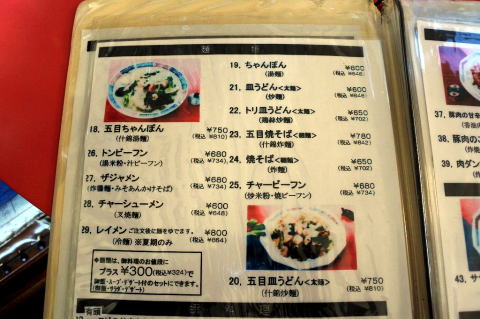 麺類
18. 五目ちゃんぽん ¥750
(什錦湯麺) (税込 ¥810)
26. トンビーフン ¥680
(湯米粉・汁ビーフン) (税込 ¥734)
27. ザジャメン ¥680
(炸醬麺・みそあんかけそば) (税込 ¥734)
28. チャーシューメン ¥600
(叉焼麺) (税込 ¥648)
29. レイメン ご注文後に麺をゆでます。 ¥800
(冷麺) ※夏期のみ (税込 ¥864)
プラス¥300(税込¥324)で
付のセットにできます。
19. ちゃんぽん ¥600
(湯麺) (税込 ¥648)
21. 皿うどん<太麺> ¥600
(炒麺) (税込 ¥648)
22. トリ皿うどん<太麺> ¥650
(鶏絲炒麺) (税込 ¥702)
23. 五目焼そば<細麺> ¥780
(什錦炸麺) (税込 ¥842)
24. 焼そば<細麺> ¥650
(炸麺) (税込 ¥702)
25. チャービーフン ¥680
(炒米粉・焼ビーフン) (税込 ¥734)
20. 五目皿うどん<太麺> ¥750
(什錦炒麺) (税込 ¥810)
37. 豚肉の甘辛
38. 豚肉のこ
39. 肉ダン
42.
43. サ